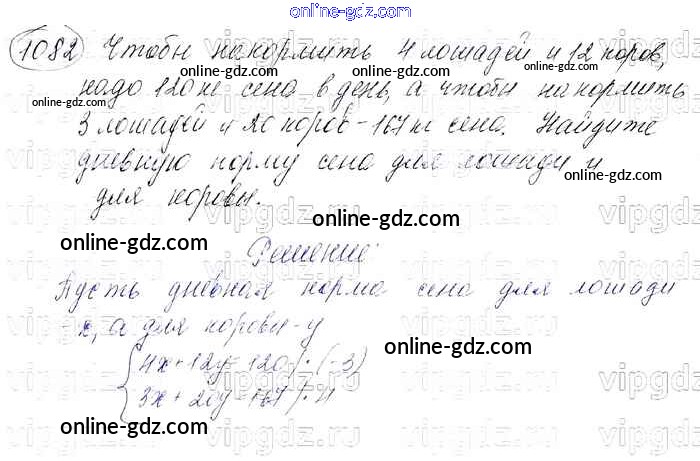 online-gdz.com
1082 Чтобы накормить 4 лошадей и 12 коров,
надо 120 кг сена в день, а чтобы накормить
3 лошадей и 20 коров - 167 кг сена. Найдите
дневную норму сена для лошади и
для коровы.
Решение:
Пусть дневная норма сена для лошади
- x, а для коровы - y
4x + 12y = 120 / · (-3)
3x + 20y = 167 / · 4
online-gdz.com
online-gdz.com
online-gdz.com
online-gdz.com
online-gdz.com
online-gdz.com
online-gdz.com
online-gdz.com
online-gdz.com
online-gdz.com
online-gdz.com
online-gdz.com
vipgdz.ru